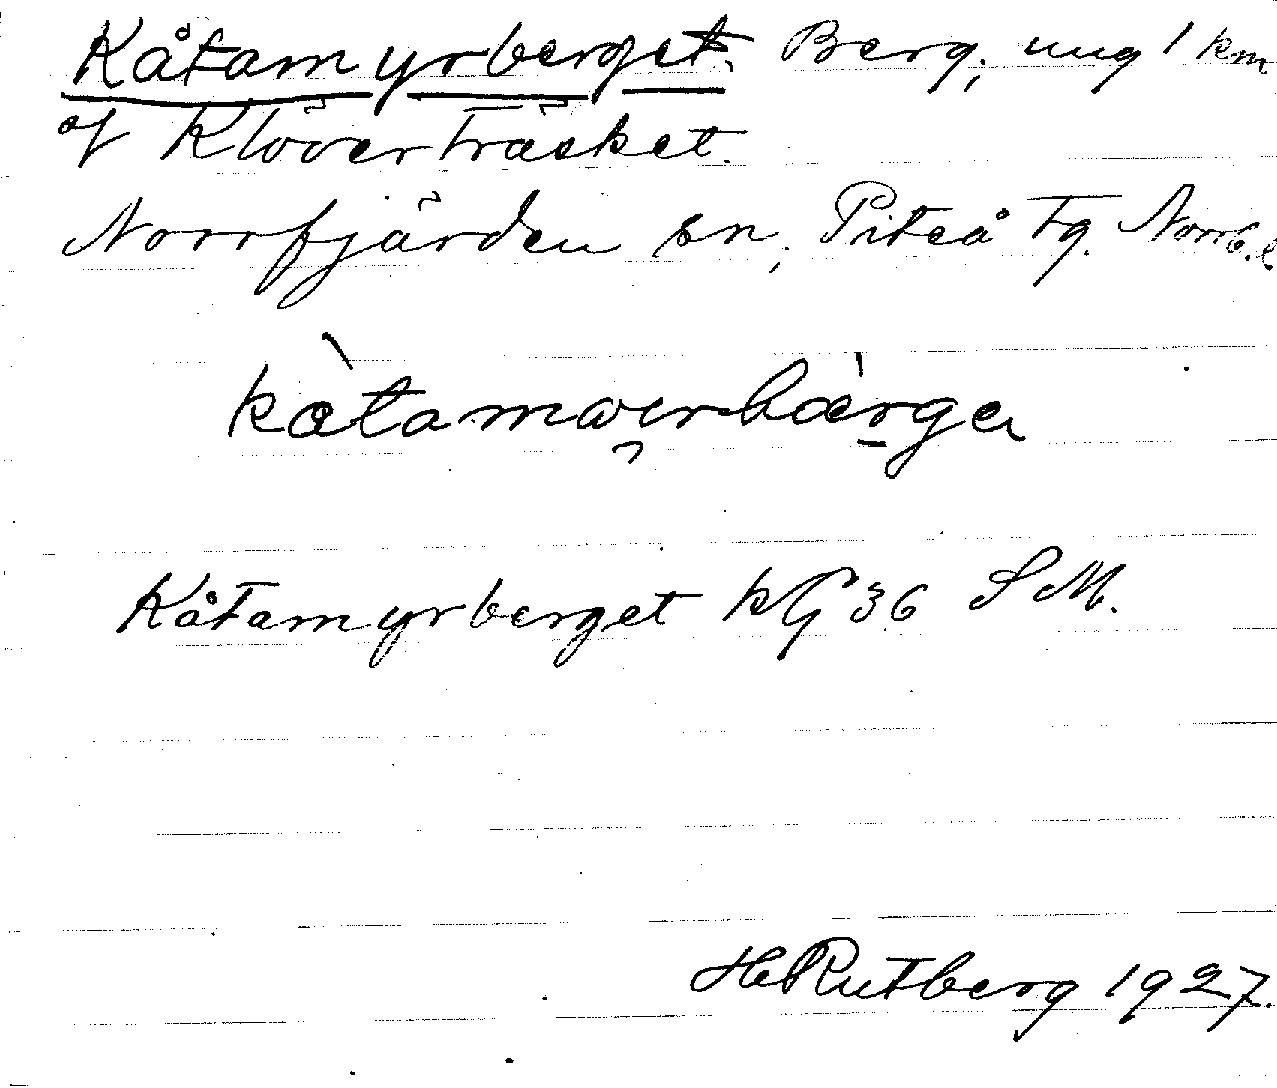 Kåtamyrberget. Berg, ung 1 km
af Klöverträsket.
Norrfjärden sn, Piteå tg. Norrb. l
Kåtamyrberget kG 36 S M.
H Rutberg 1927.